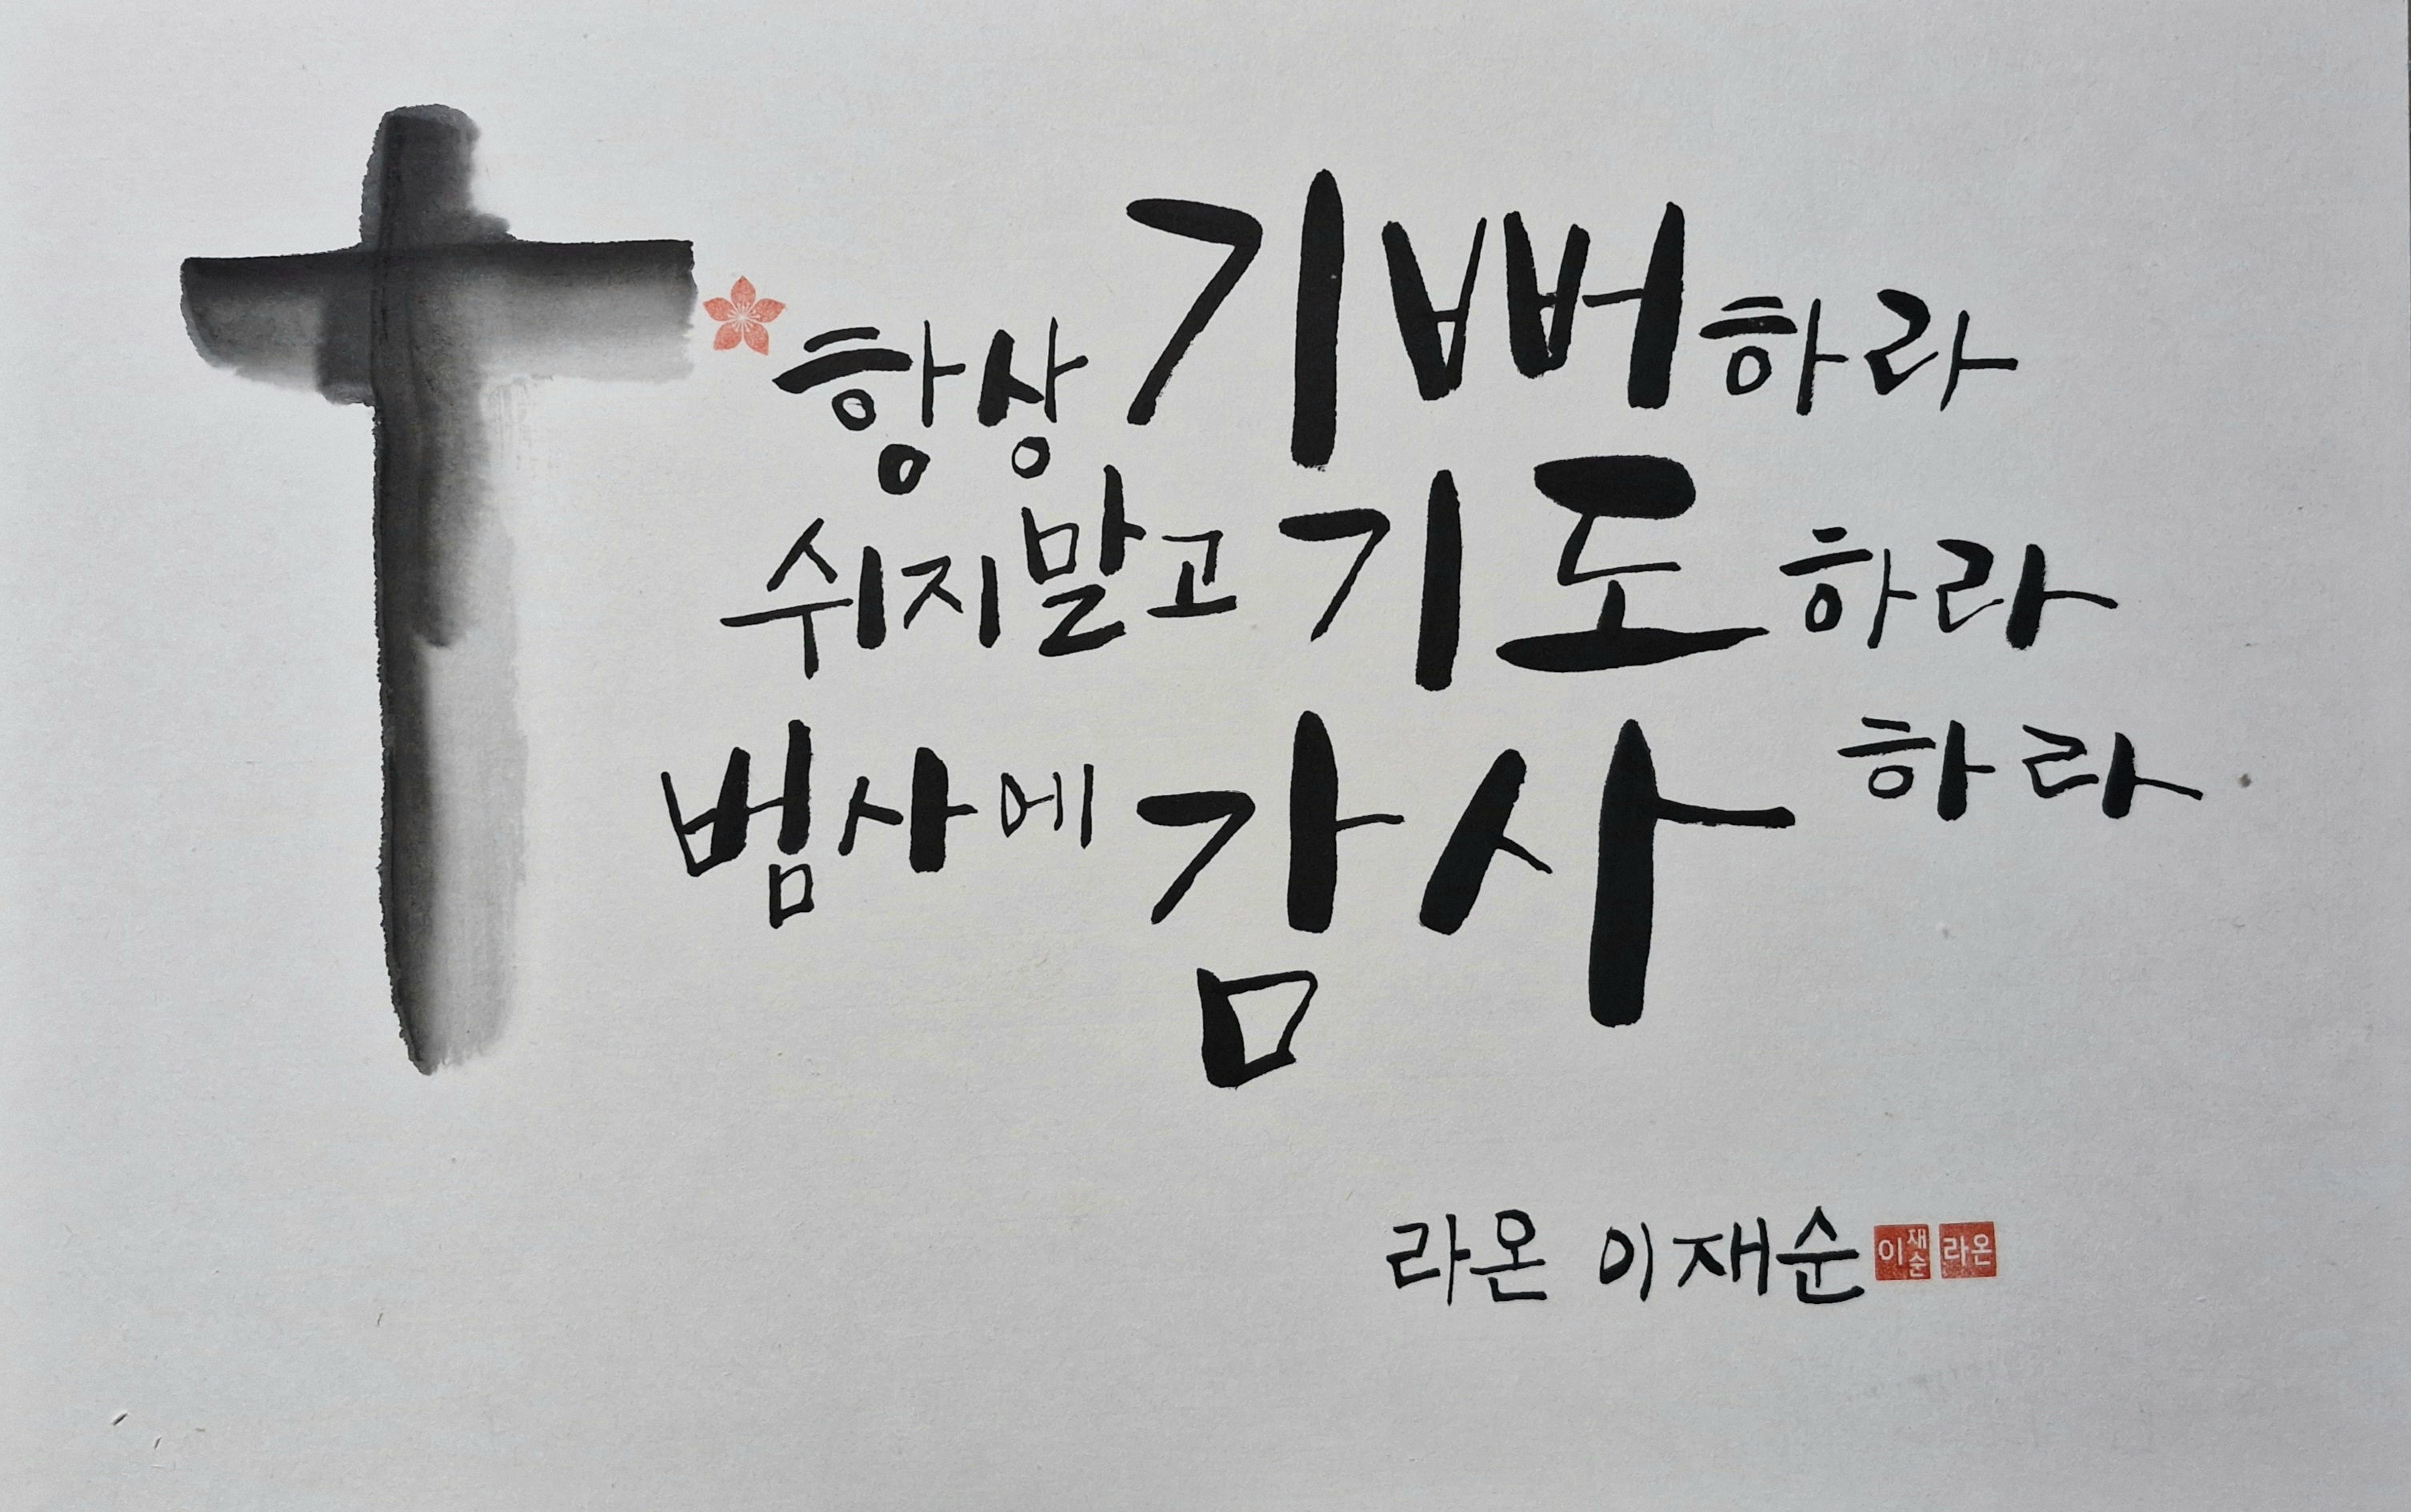 항상 기뻐하라
쉬지말고 기도하라
범사에 감사하라
라온 이재순 이재순 라온